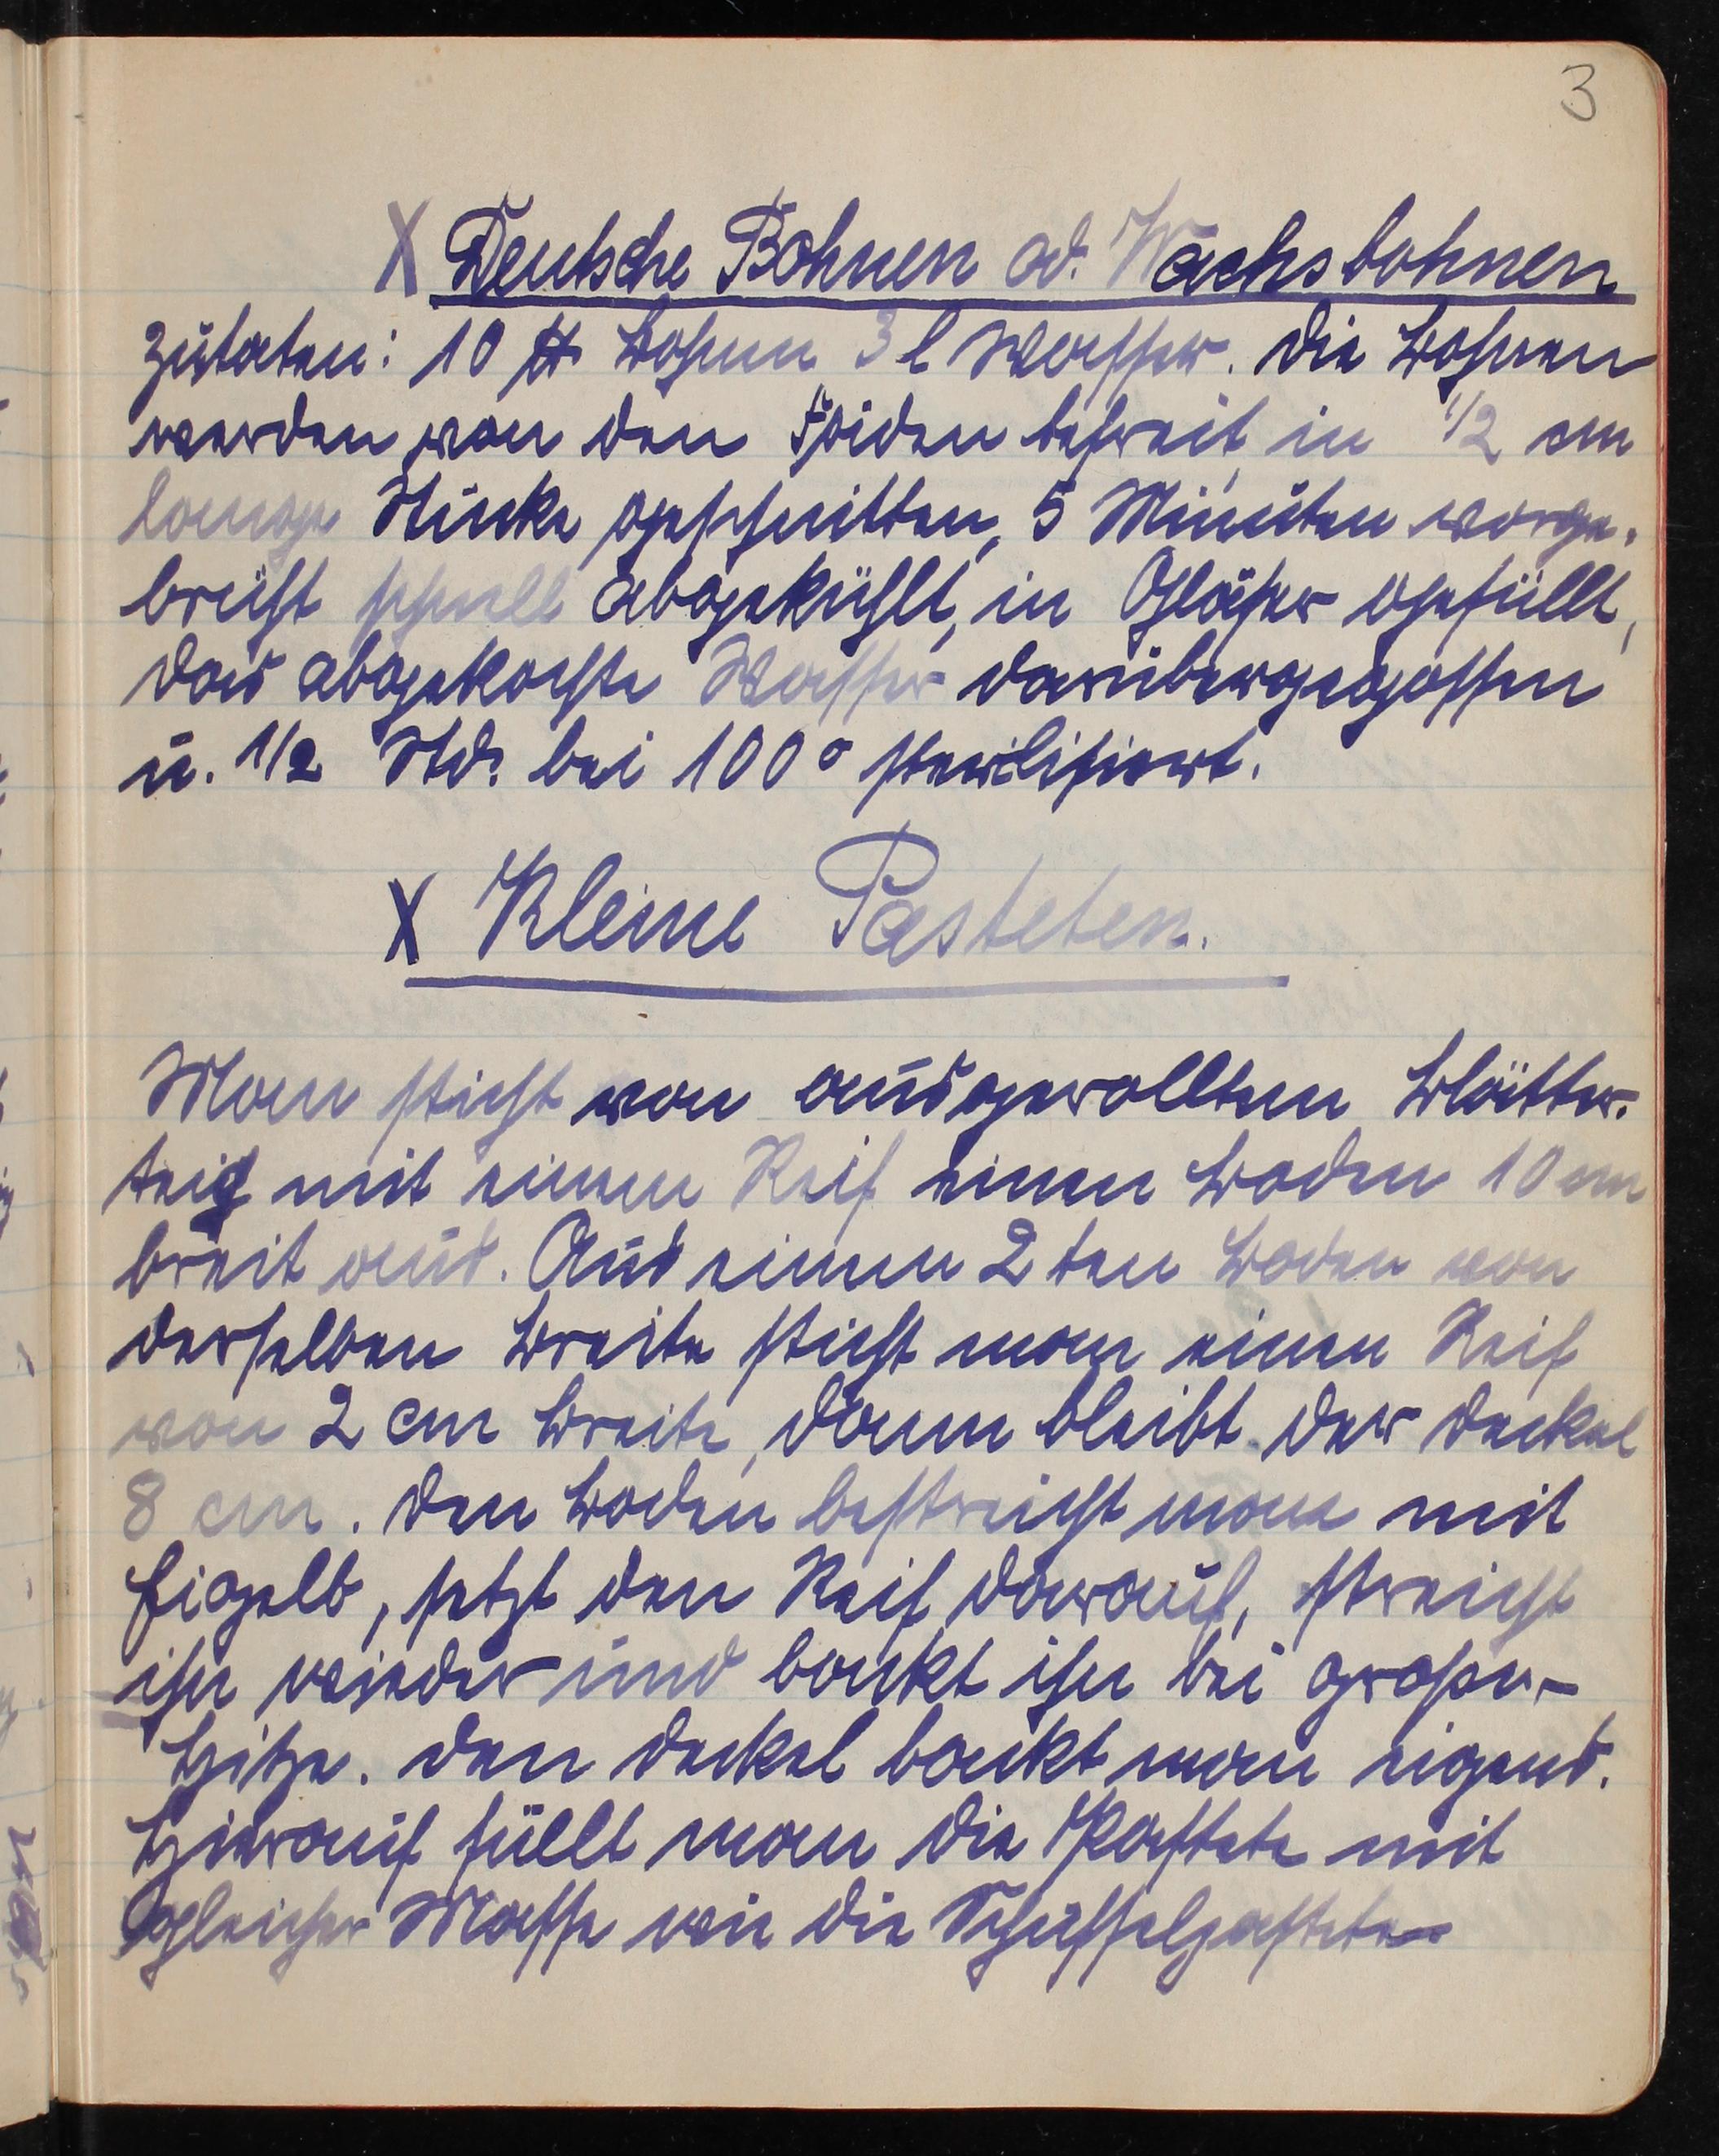 3
X Deutsche Bohnen od. Wachsbohnen
Zutaten: 10 ℔ Bohnen 3 l Wasser. Die Bohnen
werden von den Fäden befreit, in 1/2 cm
lange Stücke geschnitten, 5 Minuten vorge-
brüht schnell abgekühlt, in Gläser gefüllt,
das abgekochte Wasser darübergegossen
u. 1/2 Std. bei 100° sterilisiert.
X Kleine Pasteten.
Man sticht von ausgerollten Blätter-
teig mit einem Reif einen Boden 10 cm
breit aus. Aus einem 2ten Boden von
derselben Breite sticht man einen Reif
von 2 cm Breite, dann bleibt der Deckel
8 cm. Den Boden bestreicht man mit
Eigelb, setzt den Reif darauf, streicht
ihn wieder und backt ihn bei großer
Hitze. Den Deckel backt man eigens.
Hierauf füllt man die Pastete mit
gleicher Masse wie die Schüsselpasteten